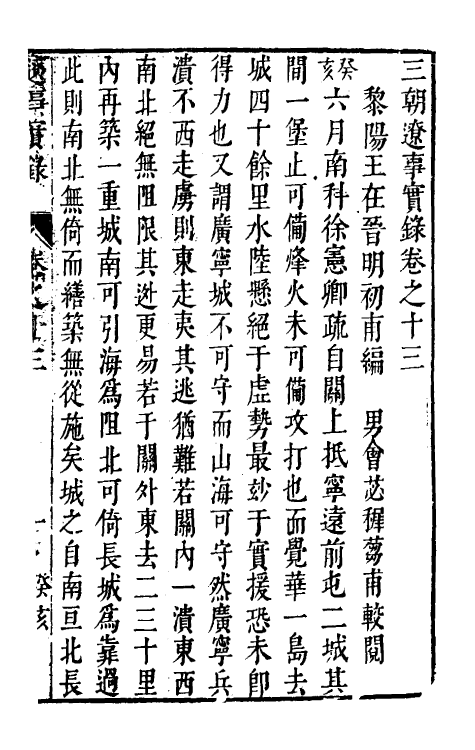 三朝遼事實錄卷之十三
黎陽王在晉明初甫編　男會苾穉蒭甫較閱
癸亥六月南科徐憲卿疏自關上抵寧遠前屯二城其
間一堡止可備烽火未可備攻打也而覺華一島去
城四十餘里水陸懸絕于虛勢最妙于實援恐未卽
得力也又謂廣寧城不可守而山海可守然廣寧兵
潰不西走虜則東走夷其逃猶難若關內一潰東西
南北絕無阻限其迯更易若于關外東去二三十里
內再築一重城南可引海爲阻北可倚長城爲靠過
此則南北無倚而繕築無從施矣城之自南亘北長
三朝遼事實錄　卷之十三　一　癸亥